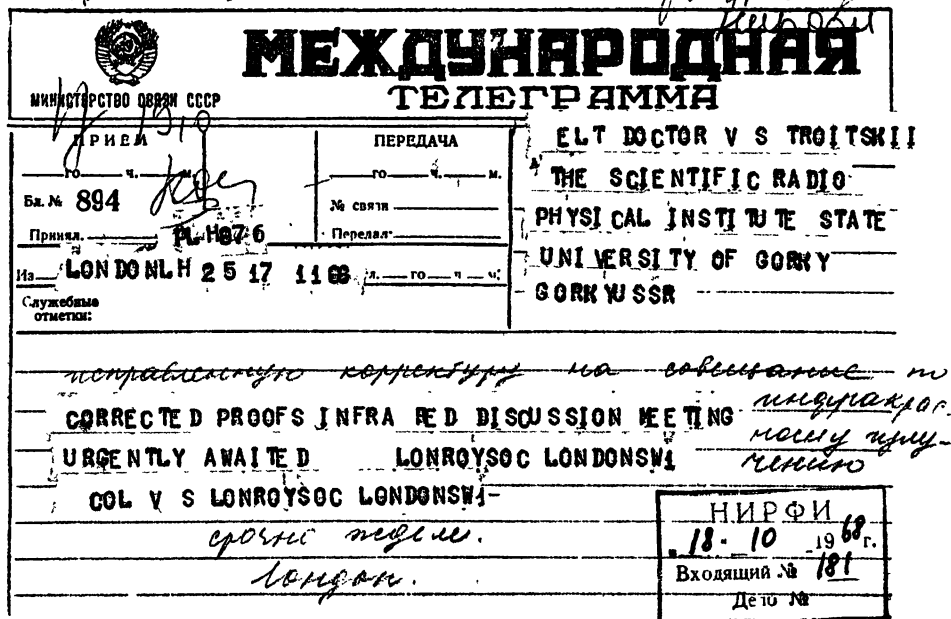 МЕЖДУНАРОДНАЯ
ТЕЛЕГРАММА
МИНИСТЕРСТВО СВЯЗИ СССР
ПРИЕМ
го ч. м.
Бл. № 894
Принял.
PLH076
Из LONDONLH 25 17
Служебные
отметки:
ПЕРЕДАЧА
го ч. м.
№ связи
Передал
ELT DOCTOR V S TROITSKII
THE SCIENTIFIC RADIO
PHYSICAL INSTITUTE STATE
UNIVERSITY OF GORKY
GORKYUSSR
исправленную корректуру на совещание по
инфракрас-
ному излу-
чению
CORRECTED PROOFS INFRA RED DISCUSSION MEETING
URGENTLY AWAITED LONROYSOC LONDONSW1
COL V S LONROYSOC LONDONSW1-
срочно
Лондон.
НИРФИ
18. 10 1968 г.
Входящий № 181
Дело №